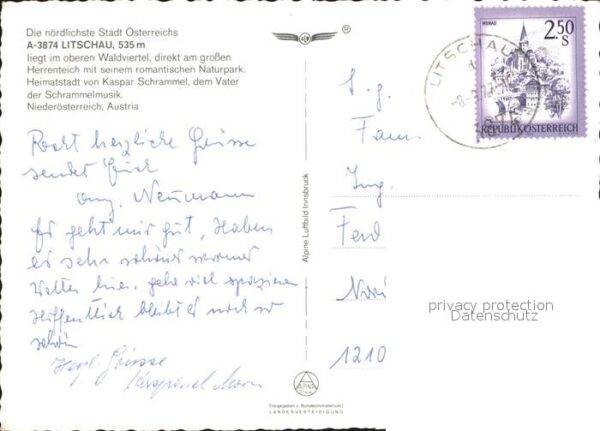 Die nördlichste Stadt Österreichs
A-3874 LITSCHAU, 535 m
liegt im oberen Waldviertel, direkt am großen
Herrenteich mit seinem romantischen Naturpark.
Heimatstadt von Kaspar Schrammel, dem Vater
der Schrammelmusik.
Niederösterreich, Austria
Recht herzliche Grüsse
sendet Euch
Neumann
Es geht mir gut, Haben
es sehr schönes warmes
Wetter hier, gehe viel spazieren
Hoffentlich bleibt es noch so
schön
Grüsse
Alpine Luftbild Innsbruck
Freigegeben v. Bundesministerium f.
LANDESVERTEIDIGUNG
LITSCHAU
MURAU
2.50
S
REPUBLIK ÖSTERREICH
S. g.
Fam.
Ing.
Ferd
1210
privacy protection
Datenschutz